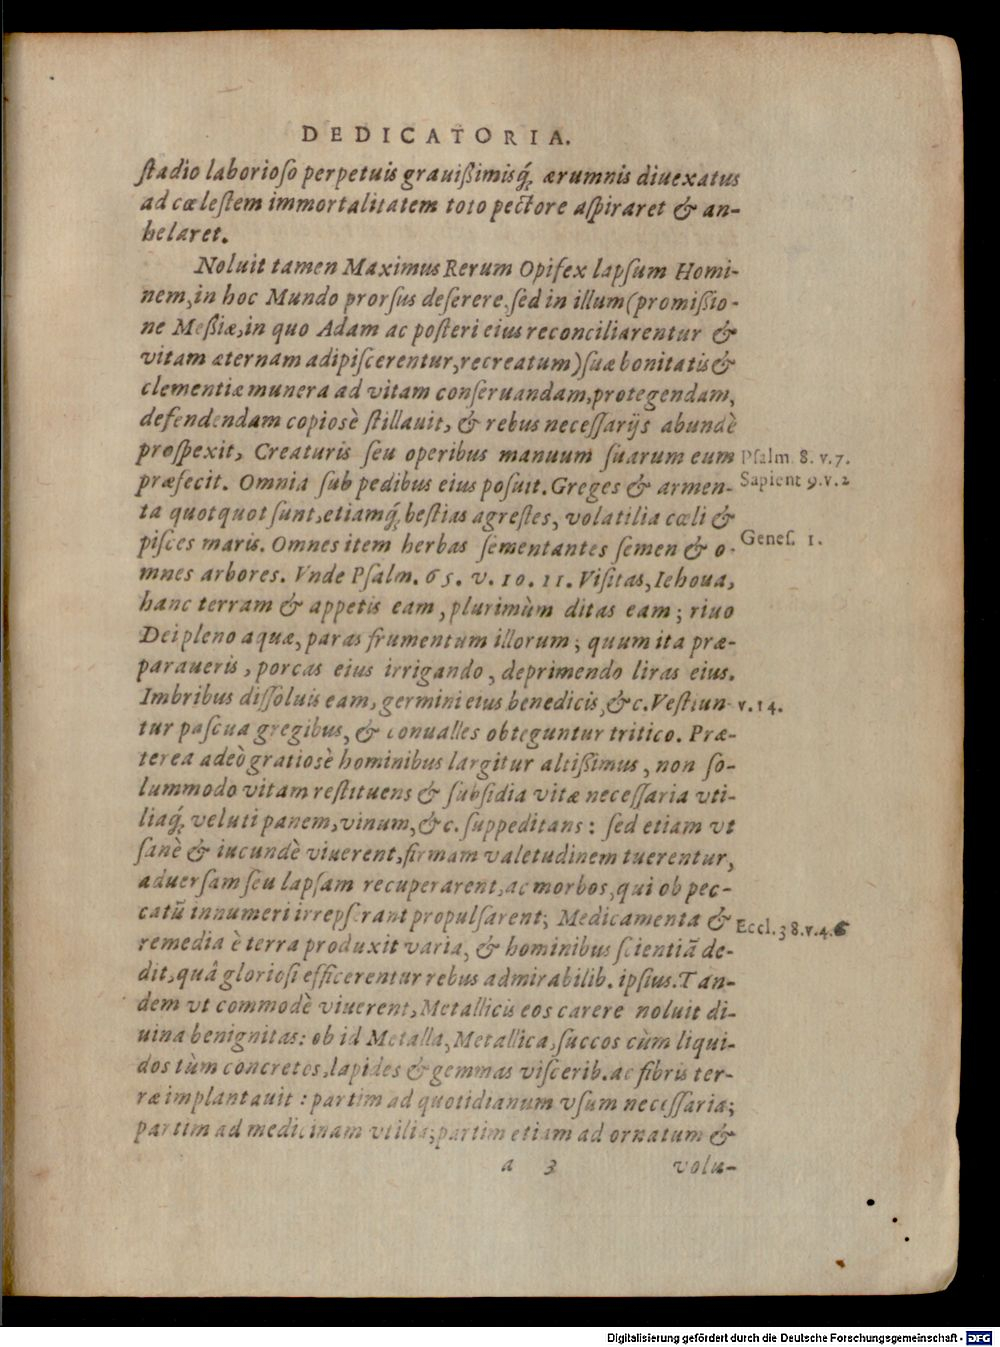 DEDICATORIA.
ſtadio laborioſo perpetuis grauißimisq́; ærumnis diuexatus
ad cœleſtem immortalitatem toto pectore aſpiraret & an-
helaret.
Noluit tamen Maximus Rerum Opifex lapſum Homi-
nem, in hoc Mundo prorſus deſerere, ſed in illum (promißio-
ne Meßiæ, in quo Adam ac poſteri eius reconciliarentur &
vitam æternam adipiſcerentur, recreatum) ſuæ bonitatis &
clementiæ munera ad vitam conſeruandam, protegendam,
defendendam copiosè ſtillauit, & rebus neceſſarijs abundè
proſpexit, Creaturis ſeu operibus manuum ſuarum eum Pſalm. 8. v. 7.
præfecit. Omnia ſub pedibus eius poſuit. Greges & armen- Sapient 9. v. 2
ta quotquot ſunt, etiamq́; beſtias agreſtes, volatilia cœli &
piſces maris. Omnes item herbas ſementantes ſemen & o- Geneſ. 1.
mnes arbores. Vnde Pſalm. 65. v. 10. 11. Viſitas, Iehoua,
hanc terram & appetis eam, plurimùm ditas eam; riuo
Dei pleno aquæ, paras frumentum illorum; quum ita præ-
paraueris, porcas eius irrigando, deprimendo liras eius.
Imbribus diſſoluis eam, germini eius benedicis, &c. Veſtiun- v. 14.
tur paſcua gregibus, & conualles obteguntur tritico. Præ-
terea adeò gratiosè hominibus largitur altißimus, non ſo-
lummodo vitam reſtituens & ſubſidia vitæ neceſſaria vti-
liaq́; veluti panem, vinum, &c. ſuppeditans: ſed etiam vt
ſanè & iucundè viuerent, firmam valetudinem tuerentur,
aduerſam ſeu lapſam recuperarent, ac morbos, qui ob pec-
catū innumeri irrepſerant propulſarent; Medicamenta & Eccl. 38. v. 4. 6
remedia è terra produxit varia, & hominibus ſcientiā de-
dit, quâ glorioſi efficerentur rebus admirabilib. ipſius. Tan-
dem vt commodè viuerent, Metallicis eos carere noluit di-
uina benignitas: ob id Metalla, Metallica, ſuccos cùm liqui-
dos tùm concretos, lapides & gemmas viſcerib. ac fibris ter-
ræ implantauit: partim ad quotidianum vſum neceſſaria;
partim ad medicinam vtilia; partim etiam ad ornatum &
a 3 volu-
Digitalisierung gefördert durch die Deutsche Forschungsgemeinschaft - DFG